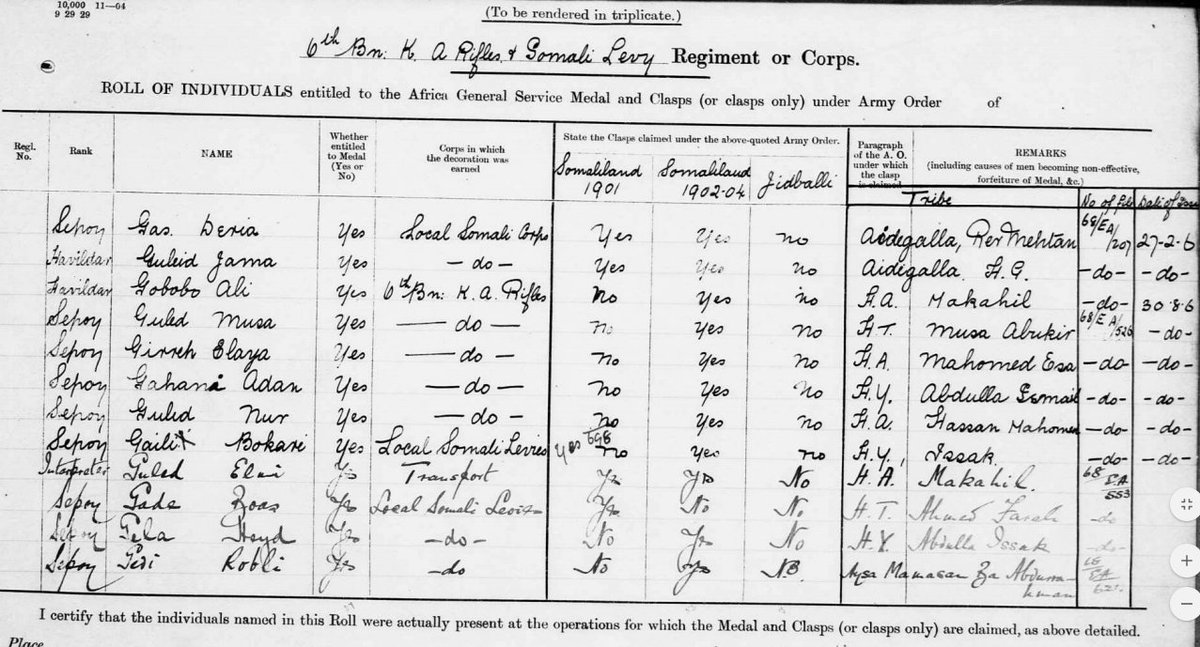 10,000 11—04
9 29 29
(To be rendered in triplicate.)
6th Bn: K. A Rifles & Somali Levy Regiment or Corps.
ROLL OF INDIVIDUALS entitled to the Africa General Service Medal and Clasps (or clasps only) under Army Order of
Regl. No. Rank NAME Whether entitled to Medal (Yes or No) Corps in which the decoration was earned State the Clasps claimed under the above-quoted Army Order. Paragraph of the A. O. under which the clasp is claimed REMARKS (including causes of men becoming non-effective, forfeiture of Medal, &c.)
Somaliland 1901 Somaliland 1902-04 Jidballi Tribe No of File Date of Issue
Sepoy Gas. Deria Yes Local Somali Corps Yes Yes no Aidegalla, Rer Mehtan 68/EA/207 27-2-6
Havildar Guleid Jama Yes —do— Yes Yes no Aidigalla. H.G. —do— —do—
Havildar Gobobo Ali Yes 6th Bn: K. A. Rifles no Yes no H.A. Makahil —do— 30.8.6
Sepoy Guled Musa Yes —do— no Yes no H.T. Musa Abukir 68/EA/526 —do—
Sepoy Girreh Elaya Yes —do— no Yes no H.A. Mahomed Esa —do— —do—
Sepoy Gahana Adan Yes —do— no Yes no H.Y. Abdulla Esmail —do— —do—
Sepoy Gulied Nur Yes —do— no Yes no H.A. Hassan Mahomed —do— —do—
Sepoy Bokari Yes Local Somali Levies Yes 698 no Yes no H.Y., Issak —do— —do—
Interpreter Guled Elmi Yes Transport Yes Yes No H.A. Makahil 68 EA 553
Sepoy Yes Local Somali Levies Yes No No H.T. Ahmed Farah do
Sepoy Yes —do— No Yes No H.Y. Abdulla Issak —do—
Sepoy Robli Yes —do No Yes No 68 EA
I certify that the individuals named in this Roll were actually present at the operations for which the Medal and Clasps (or clasps only) are claimed, as above detailed.
Place